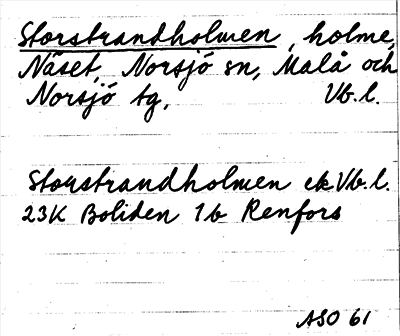 Storstrandholmen, holme,
Näset, Norsjö sn, Malå och
Norsjö tg, Vb.l.
Storstrandholmen ek Vb.l.
23K Boliden 1b Renfors
ASO 61